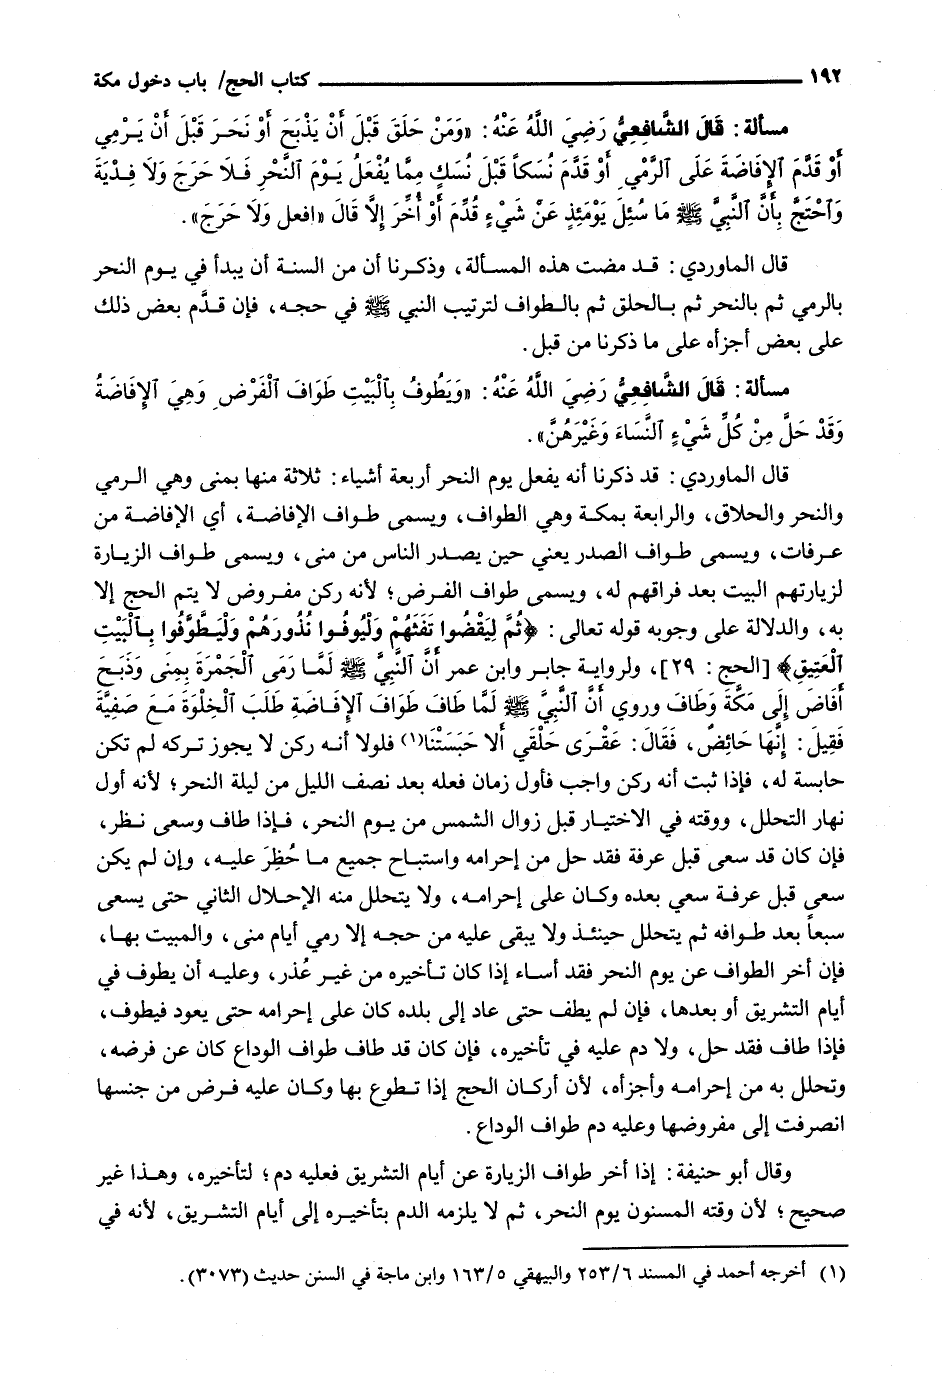 ١٩٢ كتاب الحج/ باب دخول مكة
مسألة: قَالَ الشَّافِعِيُّ رَضِيَ اللَّهُ عَنْهُ: «وَمَنْ حَلَقَ قَبْلَ أَنْ يَذْبَحَ أَوْ نَحَرَ قَبْلَ أَنْ يَرْمِي
أَوْ قَدَّمَ ٱلإِفَاضَةَ عَلَى ٱلرَّمْيِ أَوْ قَدَّمَ نُسَكاً قَبْلَ نُسَكٍ مِمَّا يُفْعَلُ يَوْمَ ٱلنَّحْرِ فَلَا حَرَجَ وَلَا فِدْيَةَ
وَٱحْتَجَّ بِأَنَّ ٱلنَّبِيَّ ﷺ مَا سُئِلَ يَوْمَئِذٍ عَنْ شَيْءٍ قُدِّمَ أَوْ أُخِّرَ إِلَّا قَالَ «افعل وَلَا حَرَجَ».
قال الماوردي: قد مضت هذه المسألة، وذكرنا أن من السنة أن يبدأ في يوم النحر
بالرمي ثم بالنحر ثم بالحلق ثم بالطواف لترتيب النبي ﷺ في حجه، فإن قدَّم بعض ذلك
على بعض أجزأه على ما ذكرنا من قبل.
مسألة: قَالَ الشَّافِعِيُّ رَضِيَ اللَّهُ عَنْهُ: «وَيَطُوفُ بِٱلْبَيْتِ طَوَافَ ٱلْفَرْضِ وَهِيَ ٱلإِفَاضَةُ
وَقَدْ حَلَّ مِنْ كُلِّ شَيْءٍ ٱلنِّسَاءَ وَغَيْرَهُنَّ».
قال الماوردي: قد ذكرنا أنه يفعل يوم النحر أربعة أشياء: ثلاثة منها بمنى وهي الرمي
والنحر والحلاق، والرابعة بمكة وهي الطواف، ويسمى طواف الإفاضة، أي الإفاضة من
عرفات، ويسمى طواف الصدر يعني حين يصدر الناس من منى، ويسمى طواف الزيارة
لزيارتهم البيت بعد فراقهم له، ويسمى طواف الفرض؛ لأنه ركن مفروض لا يتم الحج إلا
به، والدلالة على وجوبه قوله تعالى: ﴿ثُمَّ لِيَقْضُوا تَفَثَهُمْ وَلْيُوفُوا نُذُورَهُمْ وَلْيَطَّوَّفُوا بِٱلْبَيْتِ
ٱلْعَتِيقِ﴾ [الحج: ٢٩]، ولرواية جابر وابن عمر أَنَّ ٱلنَّبِيَّ ﷺ لَمَّا رَمَى ٱلْجَمْرَةَ بِمِنَى وَذَبَحَ
أَفَاضَ إِلَى مَكَّةَ وَطَافَ وروي أَنَّ ٱلنَّبِيَّ ﷺ لَمَّا طَافَ طَوَافَ ٱلإِفَاضَةِ طَلَبَ ٱلْخِلْوَةَ مَعَ صَفِيَّةَ
فَقِيلَ: إِنَّهَا حَائِضٌ، فَقَالَ: عَقْرَى حَلْقَي أَلا حَبَسَتْنَا(١) فلولا أنه ركن لا يجوز تركه لم تكن
حابسة له، فإذا ثبت أنه ركن واجب فأول زمان فعله بعد نصف الليل من ليلة النحر؛ لأنه أول
نهار التحلل، ووقته في الاختيار قبل زوال الشمس من يوم النحر، فإذا طاف وسعى نظر،
فإن كان قد سعى قبل عرفة فقد حل من إحرامه واستباح جميع ما حُظِرَ عليه، وإن لم يكن
سعى قبل عرفة سعي بعده وكان على إحرامه، ولا يتحلل منه الإحلال الثاني حتى يسعى
سبعاً بعد طوافه ثم يتحلل حينئذ ولا يبقى عليه من حجه إلا رمي أيام منى، والمبيت بها،
فإن أخر الطواف عن يوم النحر فقد أساء إذا كان تأخيره من غير عُذر، وعليه أن يطوف في
أيام التشريق أو بعدها، فإن لم يطف حتى عاد إلى بلده كان على إحرامه حتى يعود فيطوف،
فإذا طاف فقد حل، ولا دم عليه في تأخيره، فإن كان قد طاف طواف الوداع كان عن فرضه،
وتحلل به من إحرامه وأجزأه، لأن أركان الحج إذا تطوع بها وكان عليه فرض من جنسها
انصرفت إلى مفروضها وعليه دم طواف الوداع.
وقال أبو حنيفة: إذا أخر طواف الزيارة عن أيام التشريق فعليه دم؛ لتأخيره، وهذا غير
صحيح؛ لأن وقته المسنون يوم النحر، ثم لا يلزمه الدم بتأخيره إلى أيام التشريق، لأنه في
(١) أخرجه أحمد في المسند ٢٥٣/٦ والبيهقي ١٦٣/٥ وابن ماجة في السنن حديث (٣٠٧٣).